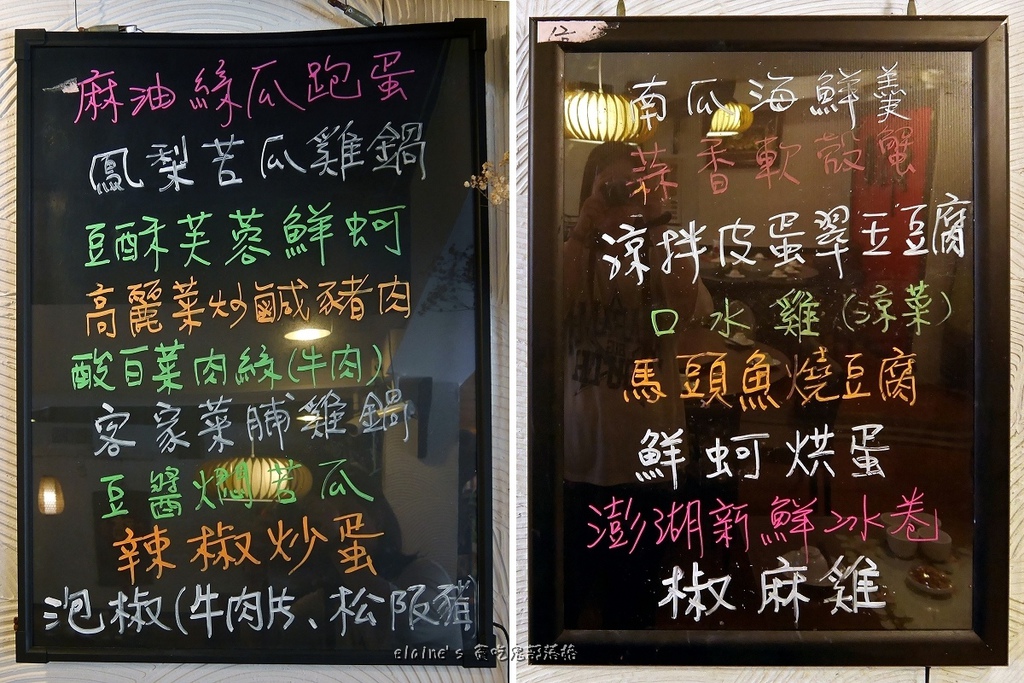 麻油絲瓜跑蛋
鳳梨苦瓜雞鍋
豆酥芙蓉鮮蚵
高麗菜炒鹹豬肉
酸白菜肉絲(牛肉)
客家菜脯雞鍋
豆醬燜苦瓜
辣椒炒蛋
泡椒(牛肉片、松阪豬
南瓜海鮮羹
蒜香軟殼蟹
涼拌皮蛋翠玉豆腐
口水雞(涼菜)
馬頭魚燒豆腐
鮮蚵烘蛋
澎湖新鮮冰卷
椒麻雞
elaine's 貪吃鬼部落格